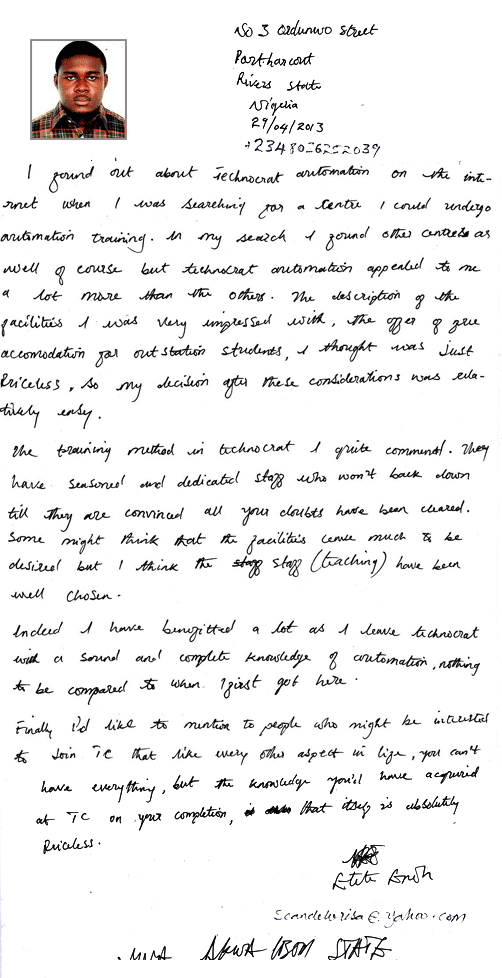 No 3 Ordunwo Street
Portharcourt
Rivers State
Nigeria
29/04/2013
I found out about Technocrat automation on the inte-
rnet when I was searching for a centre I could undergo
automation training. In my search I found other centres as
well of course but technocrat automation appealed to me
a lot more than the others. The description of the
facilities I was very impressed with, the offer of free
accomodation for outstation students, I thought was just
Priceless, so my decision after these considerations was rela-
tively easy.
The training method in technocrat I quite commend. They
have seasoned and dedicated staff who won't back down
till they are convinced all your doubts have been cleared.
Some might think that the facilities leave much to be
desired but I think the staff staff (teaching) have been
well chosen.
Indeed I have benefitted a lot as I leave technocrat
with a sound and complete knowledge of automation, nothing
to be compared to when I first got here.
Finally I'd like to mention to people who might be interested
to Join TC that like every other aspect in life, you can't
have everything, but the knowledge you'd have acquired
at TC on your completion, that itself is absolutely
Priceless.
@yahoo.com
AKWA IBOM STATE